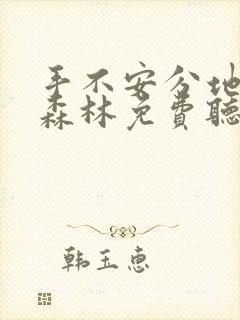 手不安分地
森林免费聽
韩玉惠